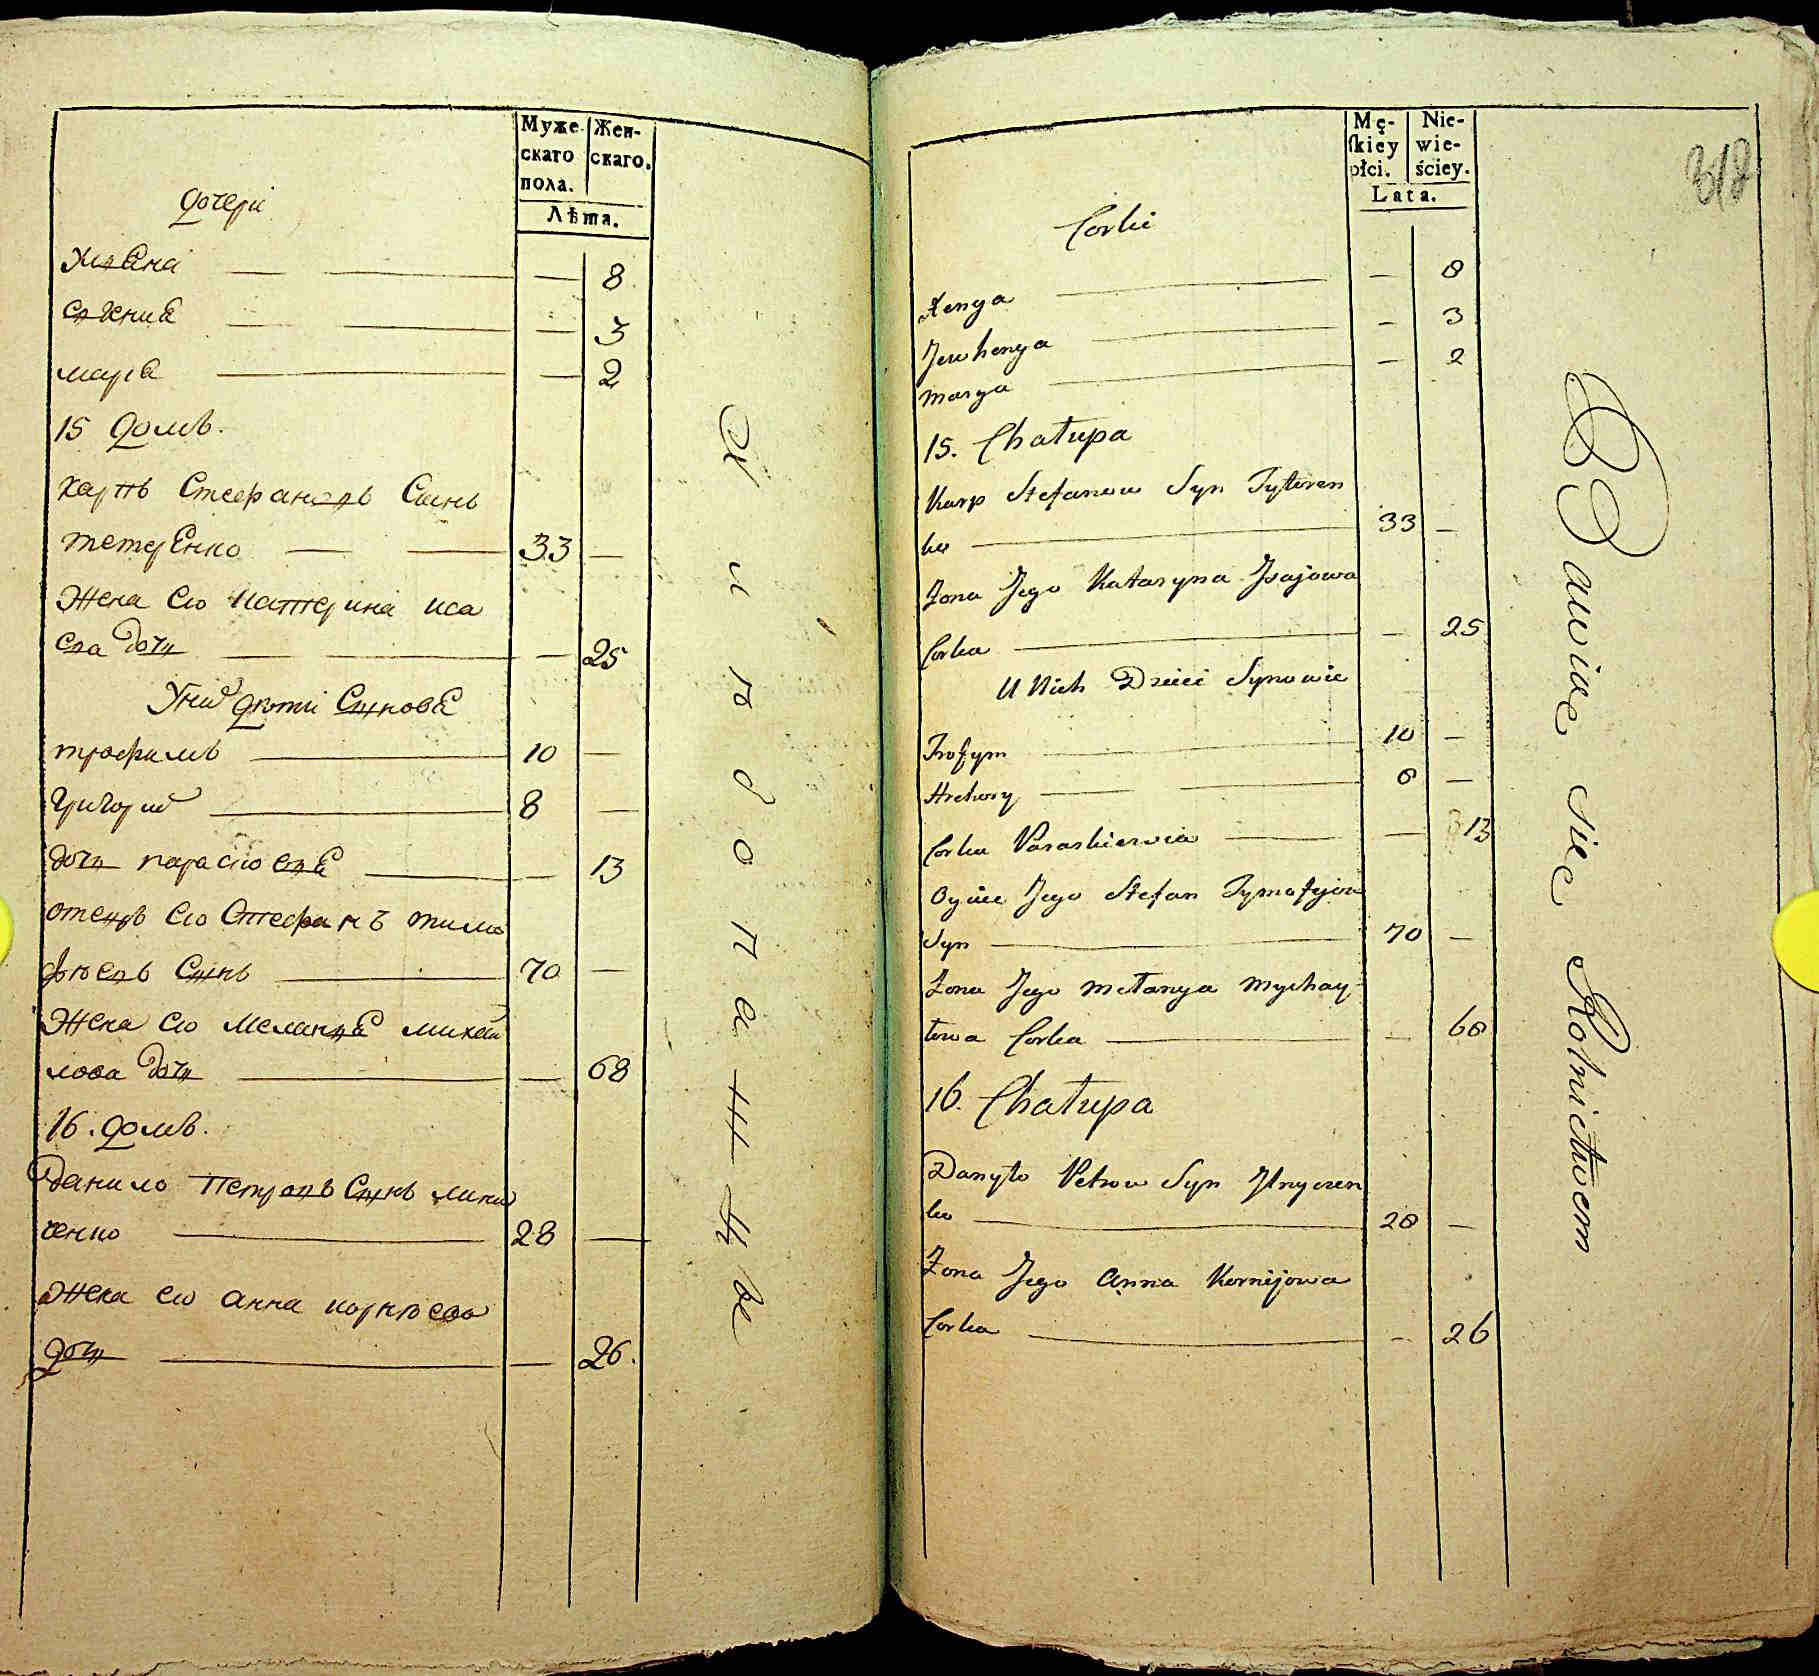 Муже-
скаго
пола.
Жен-
скаго.
Лѣта.
дочери
8
3
марія
2
15 домъ.
Карпъ Стефановъ Сынъ
тетеренко
33
Жена его Катерина иса
ева дочь
25
У них дѣти Сыновя
трофимъ
10
Григорий
8
дочь парасковея
13
отецъ его Стефанъ тимо
фѣевъ Сынъ
70
Жена его Меланя михай
лова дочь
68
16. домъ.
Данило Петровъ Сынъ
ченко
28
Жена его анна корнѣева
дочь
26.
Хлѣбопашцы
Mę-
skiey
płci.
Nie-
wie-
ściey.
Lata.
318
Corki
Xenya
— 8
Jewhenya
— 3
Marya
— 2
15. Chałupa
Karp Stefanow Syn Tyteren
ko
33 —
Zona Jego Kataryna Jsajowa
Corka
— 25
U Nich Dzieci Synowie
Trofym
10 —
Hrehory
8 —
Corka Paraskiewia
— 13
Oyciec Jego Stefan Tymofyjow
Syn
70 —
Zona Jego Mełanya Mychay-
łowa Corka
— 68
16. Chałupa
Danyło Petrow Syn
ko
28 —
Zona Jego Anna Kornijowa
Corka
— 26
Bawiąc się Rolnictwem